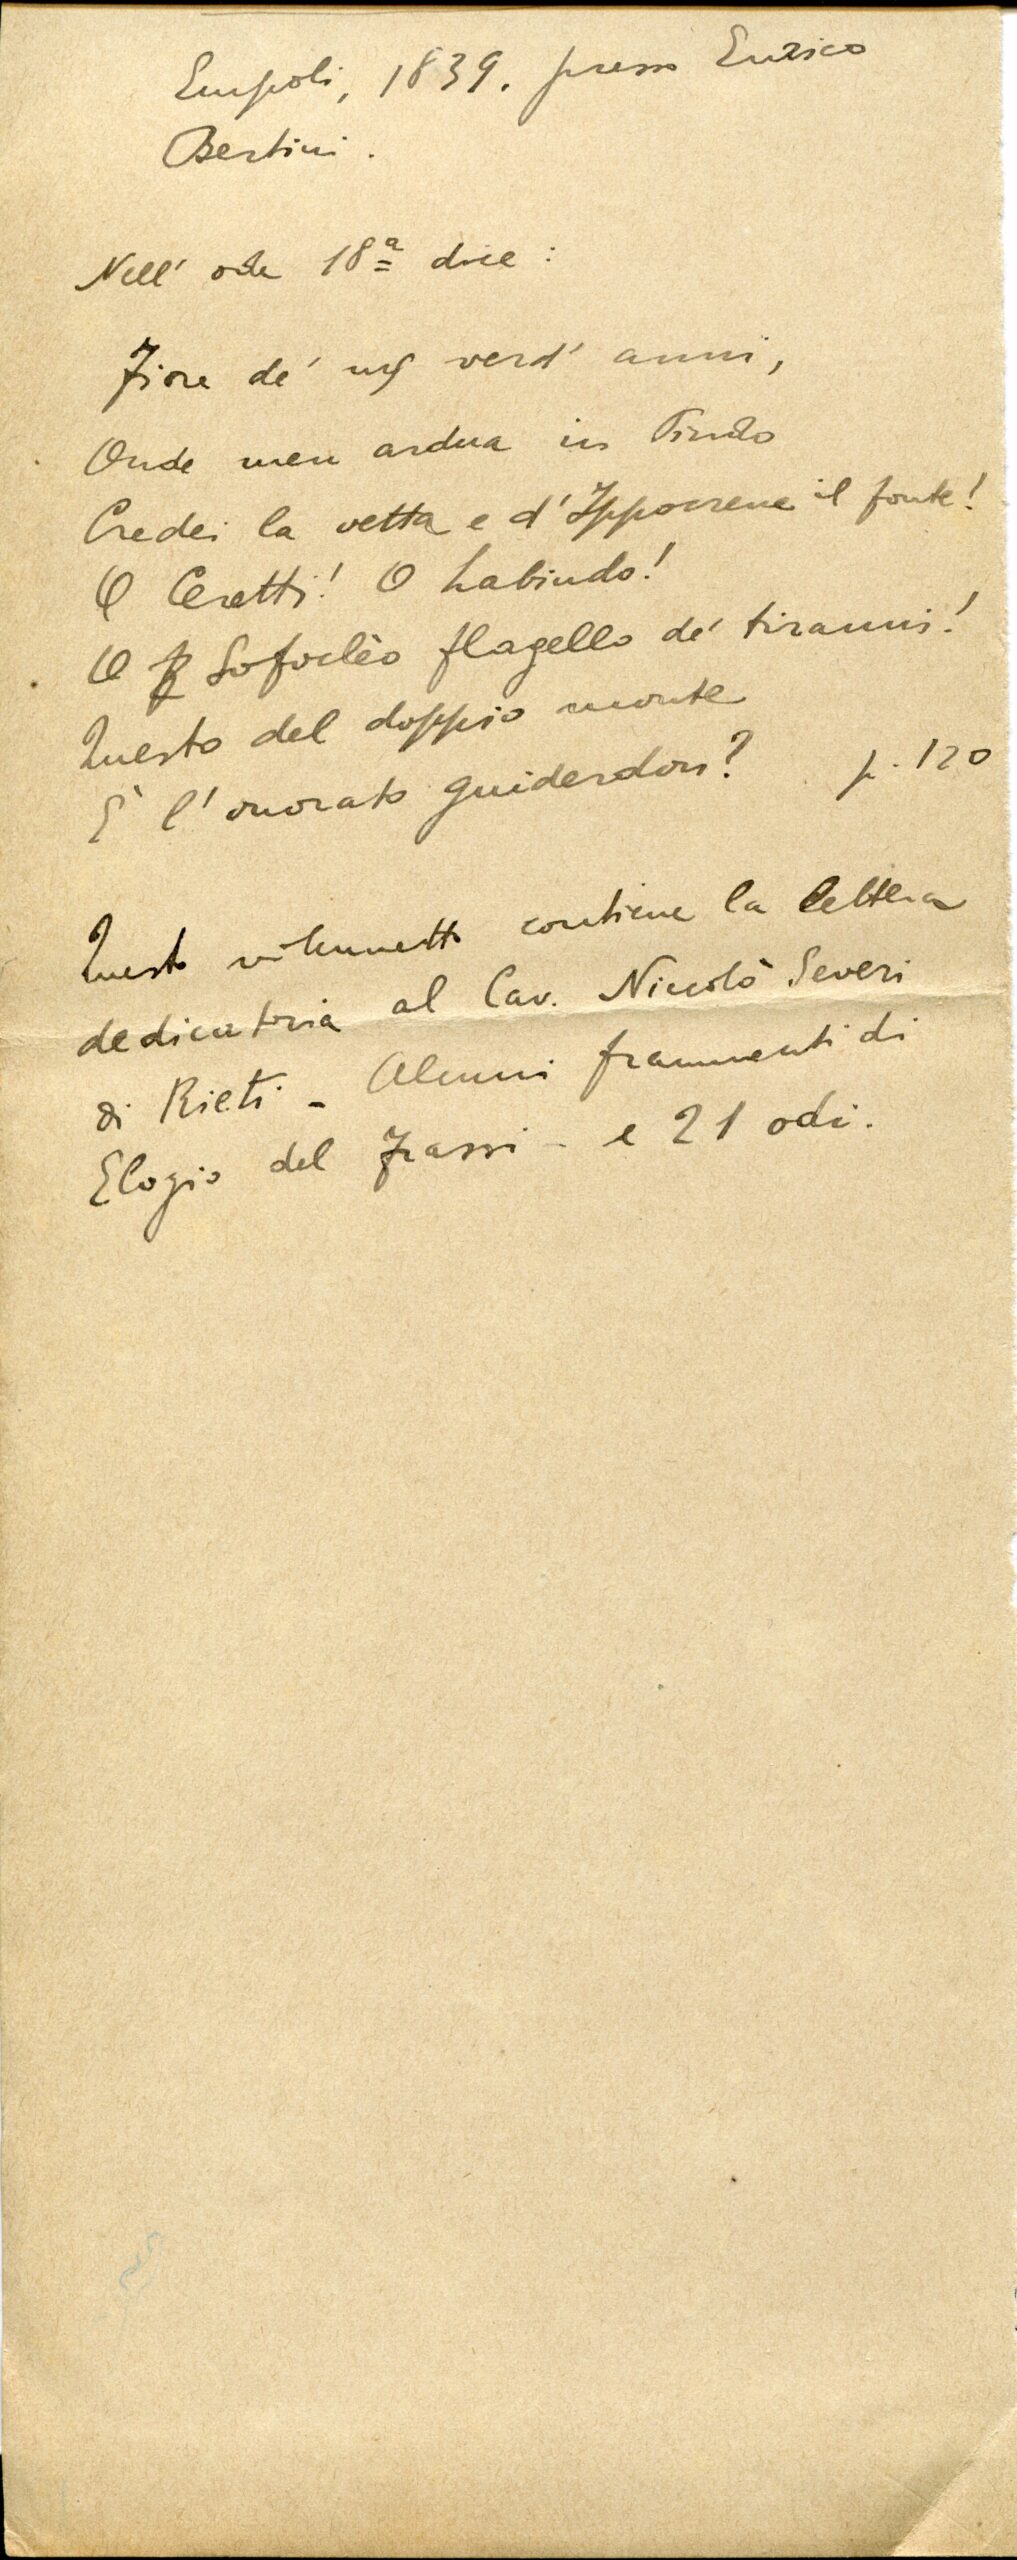 Empoli, 1839. presso Enrico
Bertini.
Nell' ode 18ª dice:
Fiore de' verd' anni,
Onde men ardua in Pindo
Credei la vetta e d'Ippocrene il fonte!
O Ceretti! O Labindo!
O Sofoclèo flagello de' tiranni!
Questo del doppio monte
È l'onorato guiderdon? p. 120
Questo volumetto contiene la lettera
dedicatoria al Cav. Niccolò Severi
di Rieti - Alcuni frammenti di
Elogio del Frassi - e 21 odi.